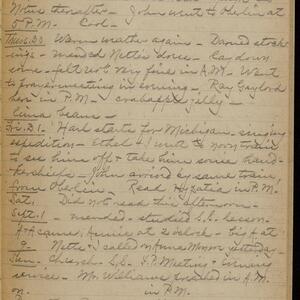 thereafter - John went to Oberlin at
5 P.M. Cool -
Thurs. 30 Warm weather again - Darned stock-
ings - mended Nettie's dress - Lay down
some - felt not very fine in A.M. - Went
to prayermeeting in evening - Ray Gaylord
here in P.M. - crabapple jelly -
Lima beans -
Fri. 31 Harl starts for Michigan - singing
expedition - Ethel & I went to noon train
to see him off & take him some hand-
kerchiefs - John arrived by same train,
from Oberlin. Read Hypatia in P.M.
Sat. Did not read this afternoon -
Sept. 1 - mended - studied S.S. lesson.
A. came, Annie at 2 o'clock -
9. Nettie & I called on Anna
Sun. - Church, S.S. Y.P. Meeting & evening
services - Mr. Williams preached in A.M.
in P.M.